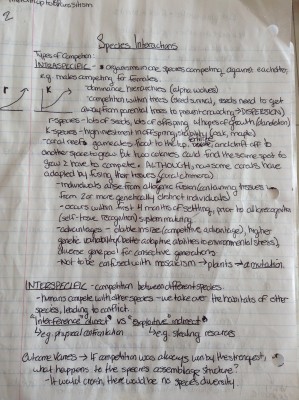 2
Species Interactions
Types of Competition:
INTRASPECIFIC - organisms in one species competing against each other,
e.g. males competing for females.
r
K
- dominance hierarchies (alpha wolves)
- competition within trees (seed survival, seeds need to get
away from parental trees to prevent crowding → DISPERSION)
r-species - lots of seeds, lots of offspring, all types of growth (dandelion)
K-species - high investment in offspring, stability (oak, maple)
- coral reefs gametes float to the top, and drift off to
another space to grow. But two colonies could find the same spot to
grow & have to compete. ALTHOUGH, now some corals have
adapted by fusing their tissues (coral chimera)
- individuals arise from allogenic fusion (containing tissues
from 2 or more genetically distinct individuals)
- occurs within first 4 months of settling, prior to allorecognition
(self-tissue recognition) system maturing
- advantages - double in size (competitive advantage), higher
genetic variability (better adaptive abilities to environmental stress),
diverse gene pool for consecutive generations
- Not to be confused with mosaicism → plants → a mutation
INTERSPECIFIC - competition between different species
- humans compete with other species - we take over the habitats of other
species, leading to conflict.
Interference "direct" vs "exploitative" indirect
e.g. physical confrontation
e.g. stealing resources
Outcome Varies → If competition was always won by the strongest,
what happens to the species assemblage structure?
- It would crash, there would be no species diversity.